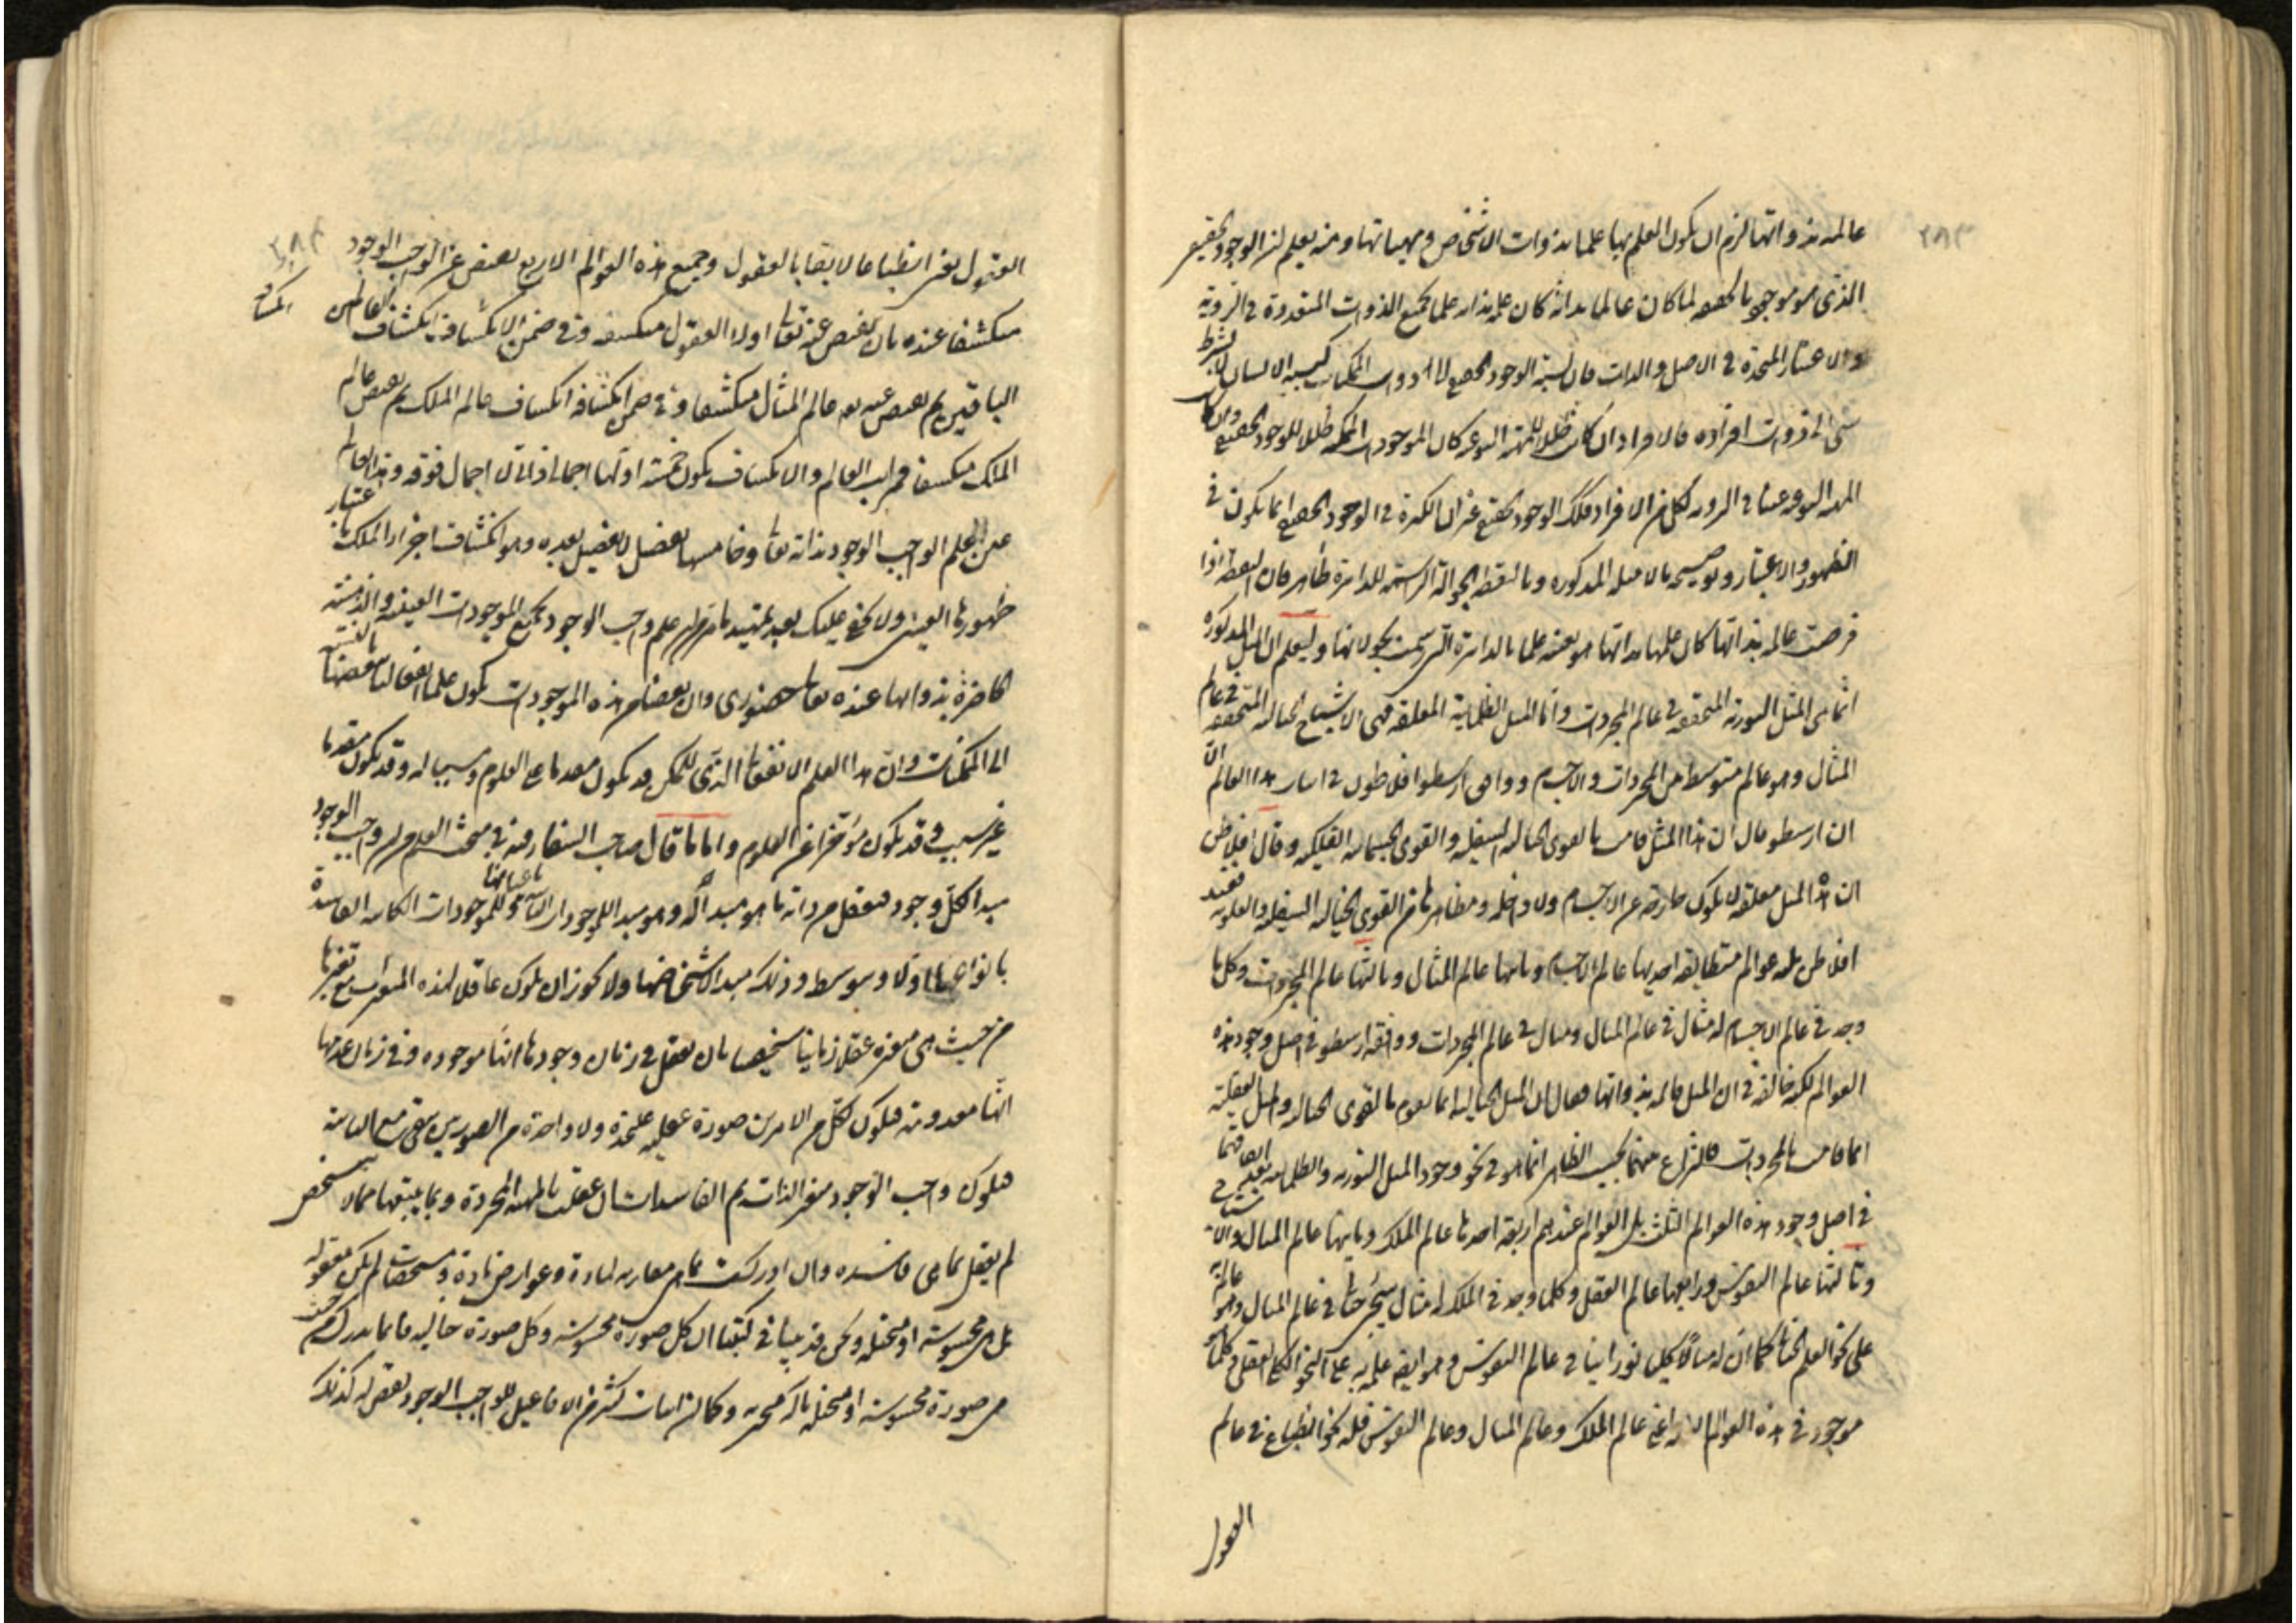 ٢٨٣
عالمه بذواتها لزم ان يكون العلم بها علما بذوات الاشخاص ومهياتها ومنه يعلم ان الوجود الحقيقي
الذي هو موجود بالحقيقه لما كان عالما بذاته كان علمه بذاته علما بجميع الذوات المتعددة في الرؤية
والاعتبار المتحدة في الاصل والذات فان نسبة الوجود الحقيقي الى ذوات الممكنات كنسبة الانسان لا بشرط
شيء الى ذوات افراده فالافراد ان كان ظلالا للمهية النوعيه كان الموجودات الممكنه ظلالا للوجود الحقيقي وان كان
المهيه النوعيه عينا في الرؤيه لكل من الافراد فكذلك الوجود الحقيقي غير ان الكثرة في الوجود الحقيقي انما يكون في
الظهور والاعتبار وتوضيحه بالامثله المذكوره وبالنقطه الجوالة الراسمه للدايرة ظاهر فان النقطه اذا
فرضت عالمه بذاتها كان علمها بذاتها هو بعينه علما بالدائرة التي رسمت بجولانها وليعلم ان المثل المذكوره
انما هي المثل النورية المتحققه في عالم المجردات واما المثل الظلمانية المعلقه فهي الاشباح الخياليه المتحققه في عالم
المثال وهو عالم متوسط بين المجردات والاجسام ووافق ارسطو افلاطون في اثبات هذا العالم الا
ان ارسطو قال ان هذا المثل قامت بالقوى الخياليه السفليه والقوى الجسمانيه الفلكيه وقال افلاطن
ان هذا المثل معلقه لا يكون خارجه عن الاجسام ولا داخله ومظاهرها من القوى الخياليه السفليه والعلويه فعند
افلاطن ثلثه عوالم متطابقه احديها عالم الاجسام وثانيها عالم المثال وثالثها عالم المجردات وكل ما
وجد في عالم الاجسام له مثال في عالم المثال ومثال في عالم المجردات ووافقه ارسطو في اصل وجود هذه
العوالم لكنه خالفه في ان المثل قائمه بذواتها فقال ان المثل الخياليه انما يقوم بالقوى الخياليه والمثل العقليه
انما قامت بالمجردات فالنزاع بينهما بحسب الظاهر انما هو في نحو وجود المثل النوريه والظلمانيه بعد اتفاقهما
في اصل وجود هذه العوالم الثلث بل العوالم عندهم اربعة احدها عالم الملك وثانيها عالم المثال
وثالثها عالم النفوس ورابعها عالم العقل وكلما وجد في الملك له مثال في عالم المثال وهو عالم به
على نحو العلم الخيالي كما ان له مثالا كليا نورانيا في عالم النفوس وهو ايضا علم به على النحو الكلي العقلي وكلما
موجود في هذه العوالم الثلاثة اعني عالم الملك وعالم المثال وعالم النفوس فله نحو انطباع في عالم
العقول
٢٨٤
العقول نعني انطباعا لايقا بالعقول وجميع هذه العوالم الاربع يفيض عن الواجب الوجود
منكشفا عنده بان يفيض عنه تعالى اولا العقول منكشفه وفي ضمن الانكشاف انكشاف العالمين
الباقيين ثم يفيض عنه بعد عالم المثال منكشفا وفي ضمن انكشافه انكشاف عالم الملك ثم يفيض عالم
الملك منكشفا فمراتب العالم والانكشاف يكون خمسة اولها اجمالي ذاتي لا اجمال فوقه وهذا العالم
عين العلم الواجب الوجود بذاته تعالى وخامسها تفصيل لا تفصيل بعده وهو انكشاف اجزاء الملك باعتبار
ظهورها العيني ولا يخفى عليك بعد تمهيد ما مر ان علم واجب الوجود بجميع الموجودات العينيه والذهنيه
الحاضرة بذواتها عنده تعالى حضوري وان بعضا من هذه الموجودات يكون علما انفعاليا بالنسبه
الى الممكنات وان هذا العلم الانفعالي الذي للممكن قد يكون معدما على العلوم وسببا له وقد يكون مقدما
غير سبب وقد يكون مؤخرا عن العلوم واما ما قال صاحب الشفا فيه في مبحث العلم من ان واجب الوجود
مبدا كل وجود فيعقل من ذاته ما هو مبدا له وهو مبدا للموجودات التامة باعيانها والموجودات الكائنه الفاسدة
بانواعها اولا وبتوسط وذلك مبدا لاشخاصها ولا يجوز ان يكون عاقلا لهذه المتغيرات مع تغيرها
من حيث هي متغيره عقلا زمانيا شخصيا بان يعقل في زمان وجودها انها موجوده وفي زمان عدمها
انها معدومة فيكون لكل من الامرين صورة عقليه عليحدة ولا واحدة من الصورتين يبقى مع الثانية
فيكون واجب الوجود متغير الذات ثم الفاسدات ان عقلت بالمهيه المجردة وبما يتبعها مما لا يتشخص
لم يعقل بما هي فاسده وان ادركت بما هي مقارنه لمادة وعوارض مادة ومشخصات لم يكن معقوله
بل هي محسوسة او متخيله ونحن قد بينا في كتبنا ان كل صورة محسوسة وكل صورة خياليه فانما يدرك من حيث
هي صورة محسوسة او متخيله بالة متجزيه وكما ان اثبات كثير من الافاعيل للواجب الوجود نقص له كذلك